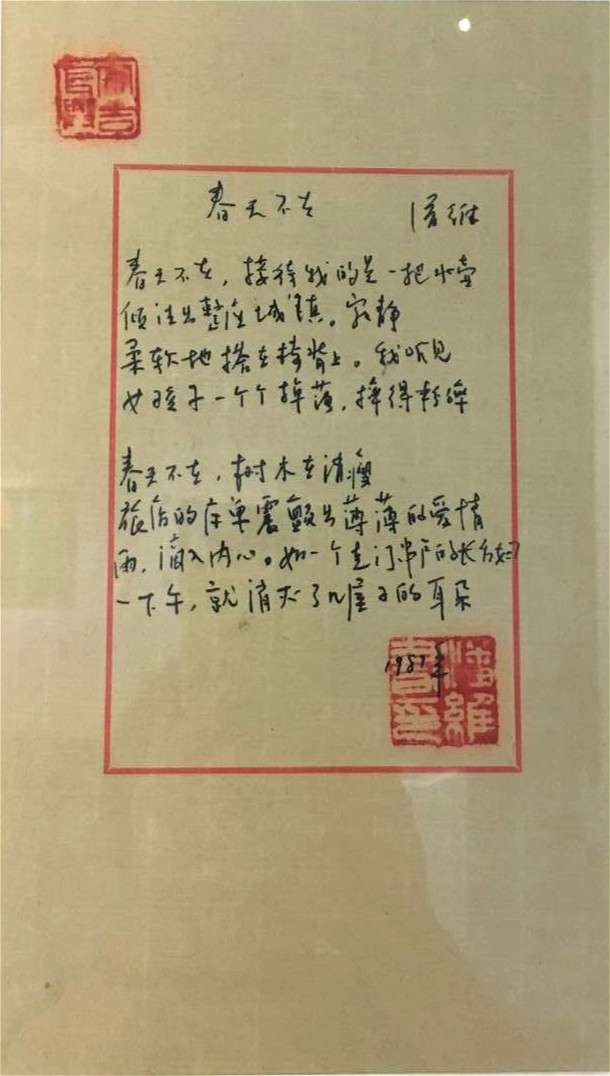 春天不在
潘维
春天不在，接待我的是一把水壶
倾注出整座城镇。寂静
柔软地搭在椅背上。我听见
女孩子一个个掉落，摔得粉碎
春天不在，树木在消瘦
旅店的床单震颤出薄薄的爱情
雨，滴入内心。如一个走门串户的长舌妇
一下午，就消灭了几屋子的耳朵
1987年
潘維書印